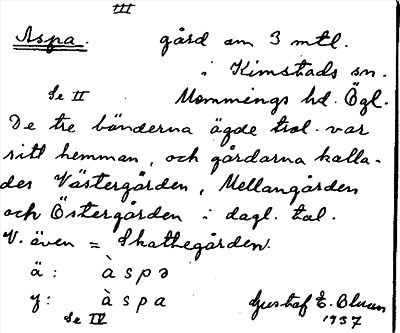 III
Aspa. gård om 3 mtl.
i Kimstads sn.
Se II Memmings hd. Ögl.
De tre bönderna ägde trol. var
sitt hemman, och gårdarna kalla-
des Västergården, Mellangården
och Östergården i dagl. tal.
V. även = Skattegården.
ä: àspə
y: àspa
Se IV Gustaf E. 
1937